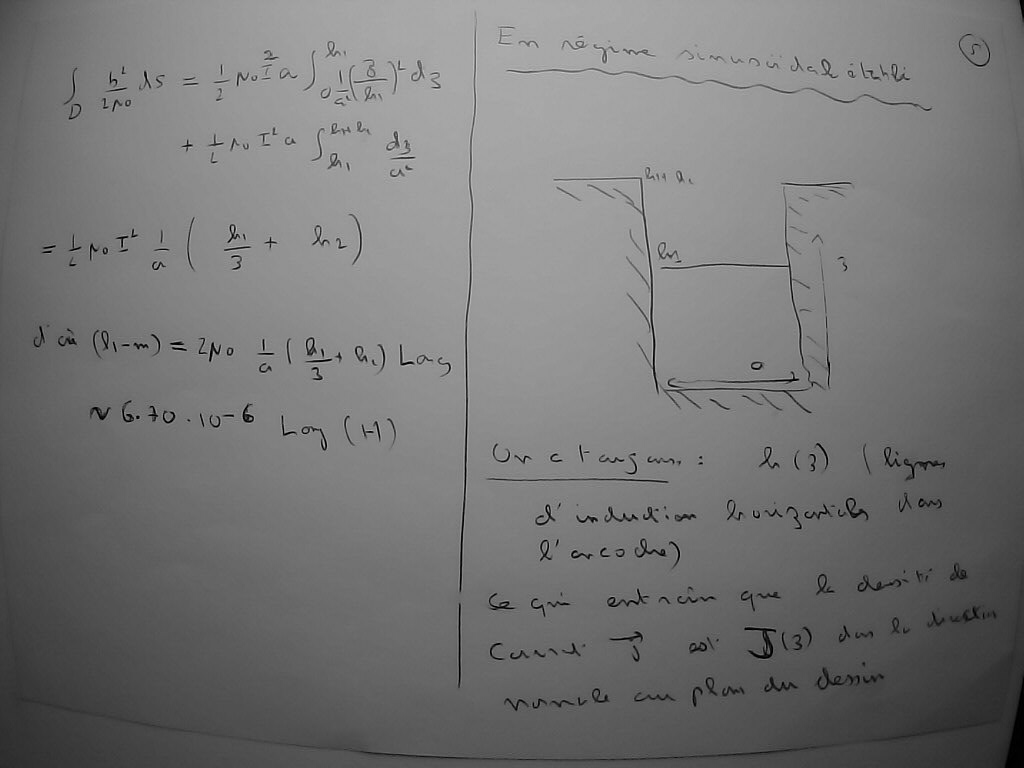 ∫_D b²/2μ₀ ds = 1/2 μ₀ I² a ∫_0^{h₁} 1/a² (z/h₁)² dz
+ 1/2 μ₀ I² a ∫_{h₁}^{h₁+h₂} dz/a²
= 1/2 μ₀ I² 1/a ( h₁/3 + h₂ )
d'où (l₁-m) = 2μ₀ 1/a ( h₁/3 + h₂ )
~ 6.70 . 10-6 (H)
En régime sinusoïdal établi
5
h₁+h₂
h₁
z
a
On a toujours : h(z) (lignes
d'induction horizontales dans
l'encoche)
ce qui entraîn que la densité de
courant j est J(z) dans la direction
normale au plan du dessin